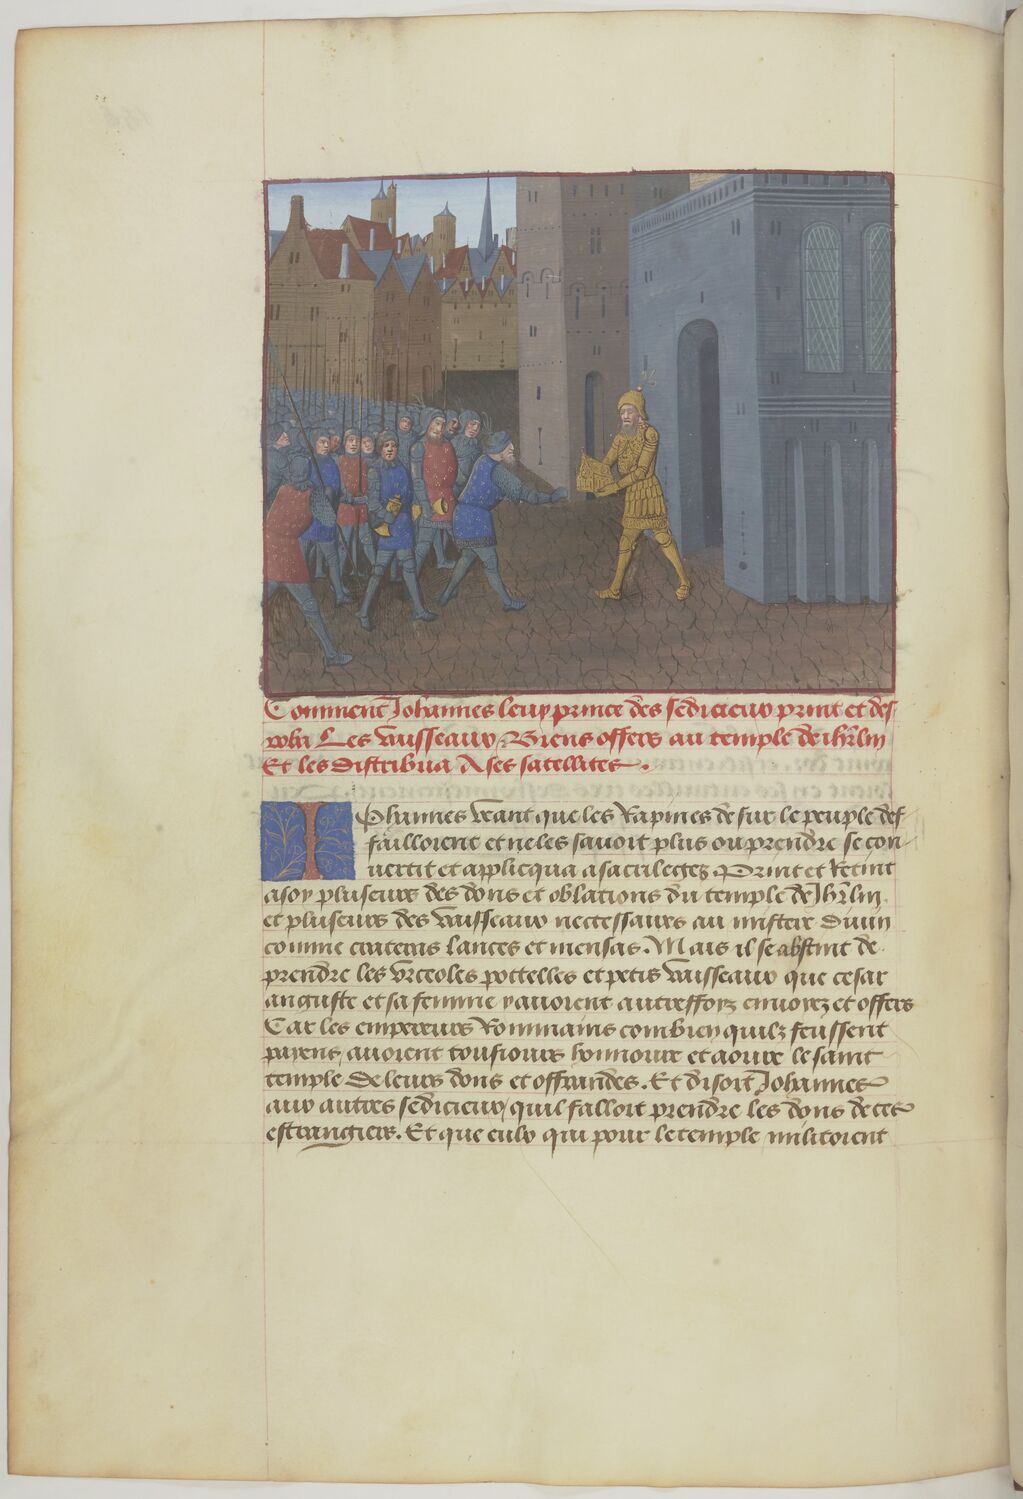 Comment Johannes leur prince des sedicieux print et des
roba Les vaisseaux Biens offers au temple de ihrlm
Et les distribua A ses satellites.
Johannes veant que les Rapines de sur le peuple def
failloient et ne les savoit plus ou prendre se con
vertit et applicqua a sacrileges Print et Retint
a soy pluseurs des dons et oblations du temple de Jhrlm
et pluseurs des vaisseaux neccessaires au mistere divin
comme lances et mensas. Mais il se abstint de
prendre les urceoles pottelles et petis vaisseaux que cesar
auguste et sa femme y avoient autreffoiz envoyez et offers
Car les empereurs Rommains combien quilz feussent
payens avoient tousiours honnoure et aoure le saint
temple de leurs dons et offrandes. Et disoit Johannes
aux autres sedicieux quil falloit prendre les dons de ces
estrangiers. Et que eulx qui pour le temple militoient